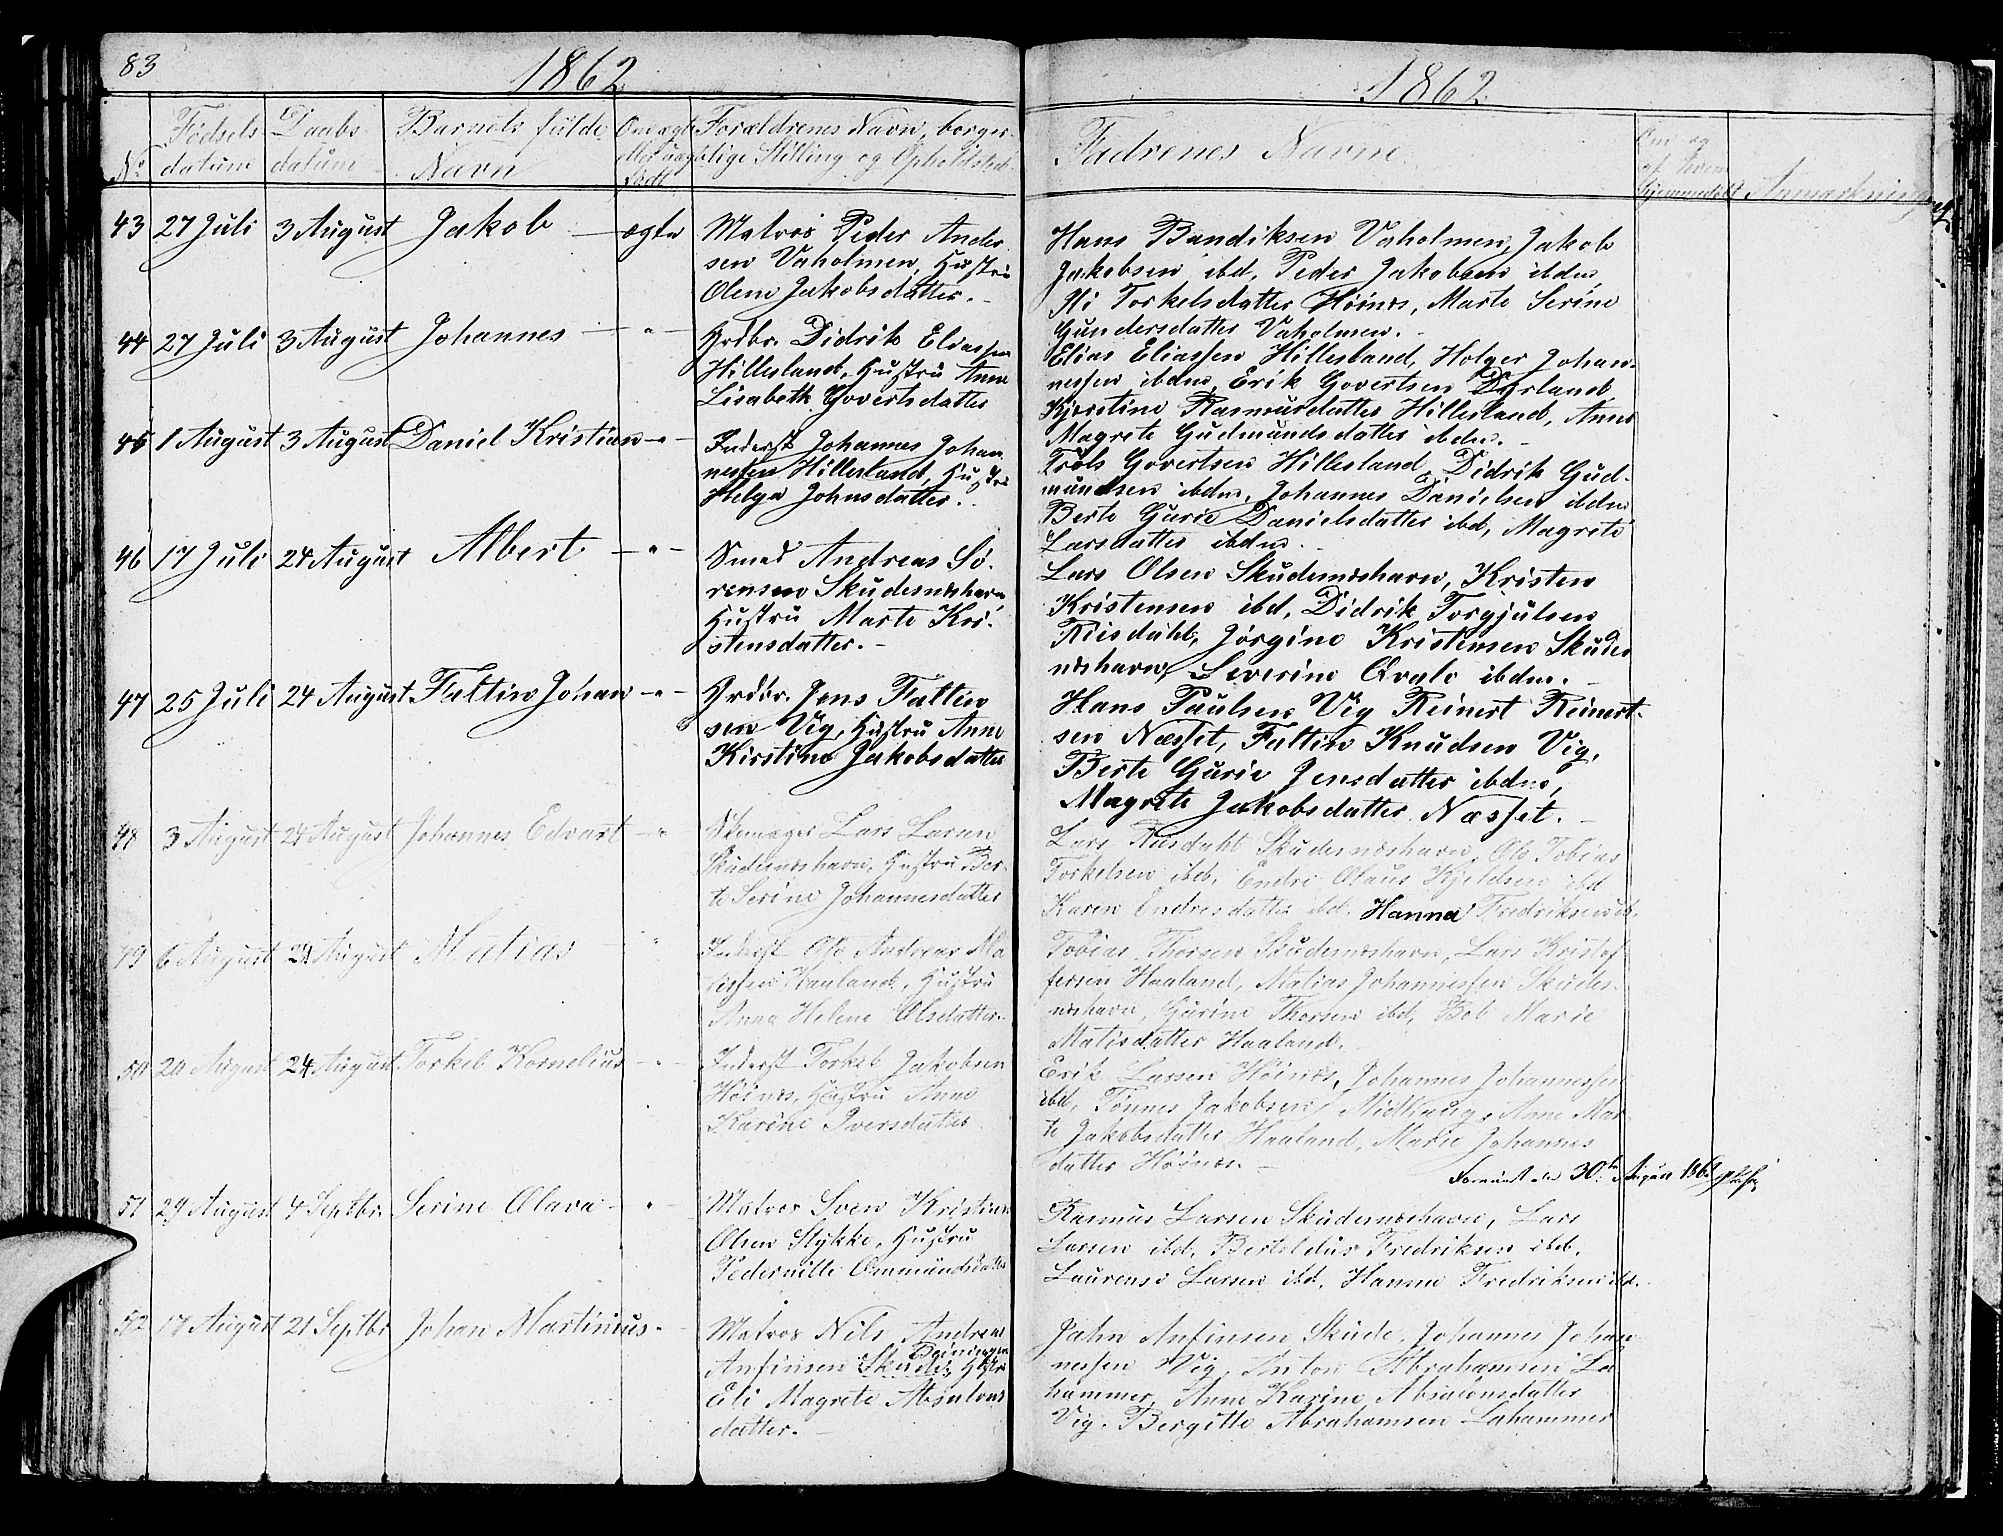 83
1862
1862
No
Fødsels
datum
Daabs
datum
Barnets fulde
Navn
Om ægte
eller uægte
født
Forældrenes Navn, borger-
lige Stilling og Opholdsted
Fadrenes Navne
Om og
af hvem
hjemmedøbt
Anmærkninger
43 27 Juli 3 August Jakob ægte
Matros Peder Ander
sen Vaholmen, Hustru
Olene Jakobsdatter.
Hans Bendiksen Vaholmen, Jakob
Jakobsen ibd, Peder Jakobsen ibdm,
Torkelsdatter Høinæs, Marte Serine
Gundersdatter Vaholmen.
44 27 Juli 3 August Johannes - " -
Grdbr. Didrik Eliassen
Hillesland, Hustru Anne
Lisabeth Govertsdatter
Elias Eliassen Hillesland, Holger Johan-
nessen ibdm, Erik Govertsen Dørland,
Kjerstine Rasmusdatter Hillesland, Anne
Magrete Gudmundsdatter ibdm.
45 1 August 3 August Daniel Kristian - " -
Inderst Johannes Johan
nessen Hillesland, Hustru
Helga Johnsdatter.
Trols Govertsen Hillesland, Didrik Gud-
mundsen ibdm, Johannes Danielsen ibdm
Berte Gurie Danielsdatter ibd, Magrete
Larsdatter ibdm.
46 17 Juli 24 August Albert - " -
Smed Andreas Sø-
rensen Skudesnæshavn
Hustru Marte Kri-
stensdatter. -
Lars Olsen Skudesnæshavn, Kristen
Kristensen ibd, Didrik Torgjulsen
Riisdahl, Jørgine Kristensen Skudes
næshavn, Severine Qvale ibdm.
47 25 Juli 24 August Faltin Johan - " -
Grdbr. Jens Faltin
sen Vig, Hustru Anne
Kirstine Jakobsdatter
Hans Paulsen Vig Reinert Reinert-
sen Næsset, Faltin Knudsen Vig,
Berte Gurie Jensdatter ibdm,
Magrete Jakobsdatter Næsset. -
48 3 August 24 August Johannes Edvart - " -
Lars Larsen
Skudesnæshavn, Hustru Ber-
te Serine Johannesdatter
Lars Riisdahl Skudesnæshavn, Ole Tobias
Torkelsen ibd, Endre Olaus Kjeldsen ibd
Karen Endresdatter ibd. Hanna Fredriksen ib.
49 6 August 24 August Matias "
Inderst Ole Andreas Ma
tissen Haaland, Hustru
Anna Helene Olsdatter.
Tobias Thorsen Skudesnæshavn, Lars Kristof
fersen Haaland, Matias Johannessen Skudes-
næshavn, Gurine Thorsen ibd, Bol Marie
Matisdatter Haaland.
50 20 August 24 August Torkel Kornelius - " -
Inderst Torkel Jakobsen
Høinæs, Hustru Anne
Karine Iversdatter
Erik Larsen Høinæs, Johannes Johannessen
ibd, Tønnes Jakobsen Midthaug, Anne Mar-
te Jakobsdatter Haaland, Marie Johannes
datter Høinæs. -
30te August 1862
51 29 August 4 Septbr. Serine Olava - " -
Matros Sven Kristian
Olsen Stykke, Hustru
Pedernille Ommundsdatter
Rasmus Larsen Skudesnæshavn, Lars
Larsen ibd, Berteldus Fredriksen ibd,
Laurense Larsen ibd, Hanne Fredriksen ibd.
52 17 August 21 Septbr Johan Martinius. -
Matros Nils Andreas
Anfinsen Skude, Hustru
Eli Magrete Absalons
datter. -
Jahn Anfinsen Skude, Johannes Johan
nessen Vig, Anton Abrahamsen La
hammer, Anne Karine Absalonsdatter
Vig. Bergitte Abrahamsen Lahammer